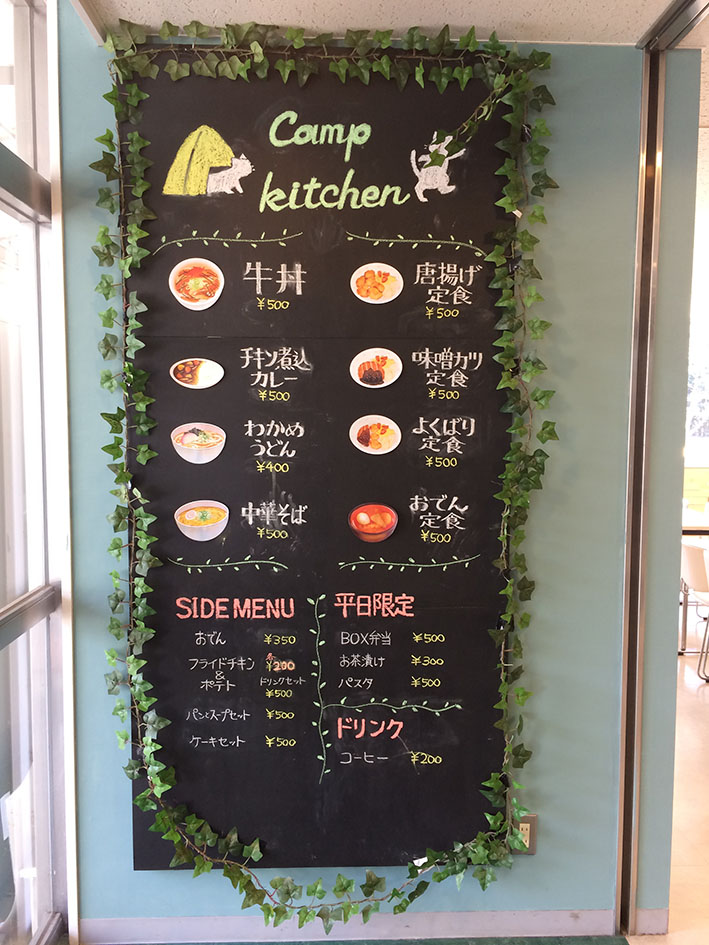 Camp
kitchen
牛丼
¥500
唐揚げ
定食
¥500
チキン煮込
カレー
¥500
味噌カツ
定食
¥500
わかめ
うどん
¥400
よくばり
定食
¥500
中華そば
¥500
おでん
定食
¥500
SIDE MENU
おでん ¥350
フライドチキン ¥200
&
ポテト ドリンクセット
¥500
パンとスープセット ¥500
ケーキセット ¥500
平日限定
BOX弁当 ¥500
お茶漬け ¥300
パスタ ¥500
ドリンク
コーヒー ¥200